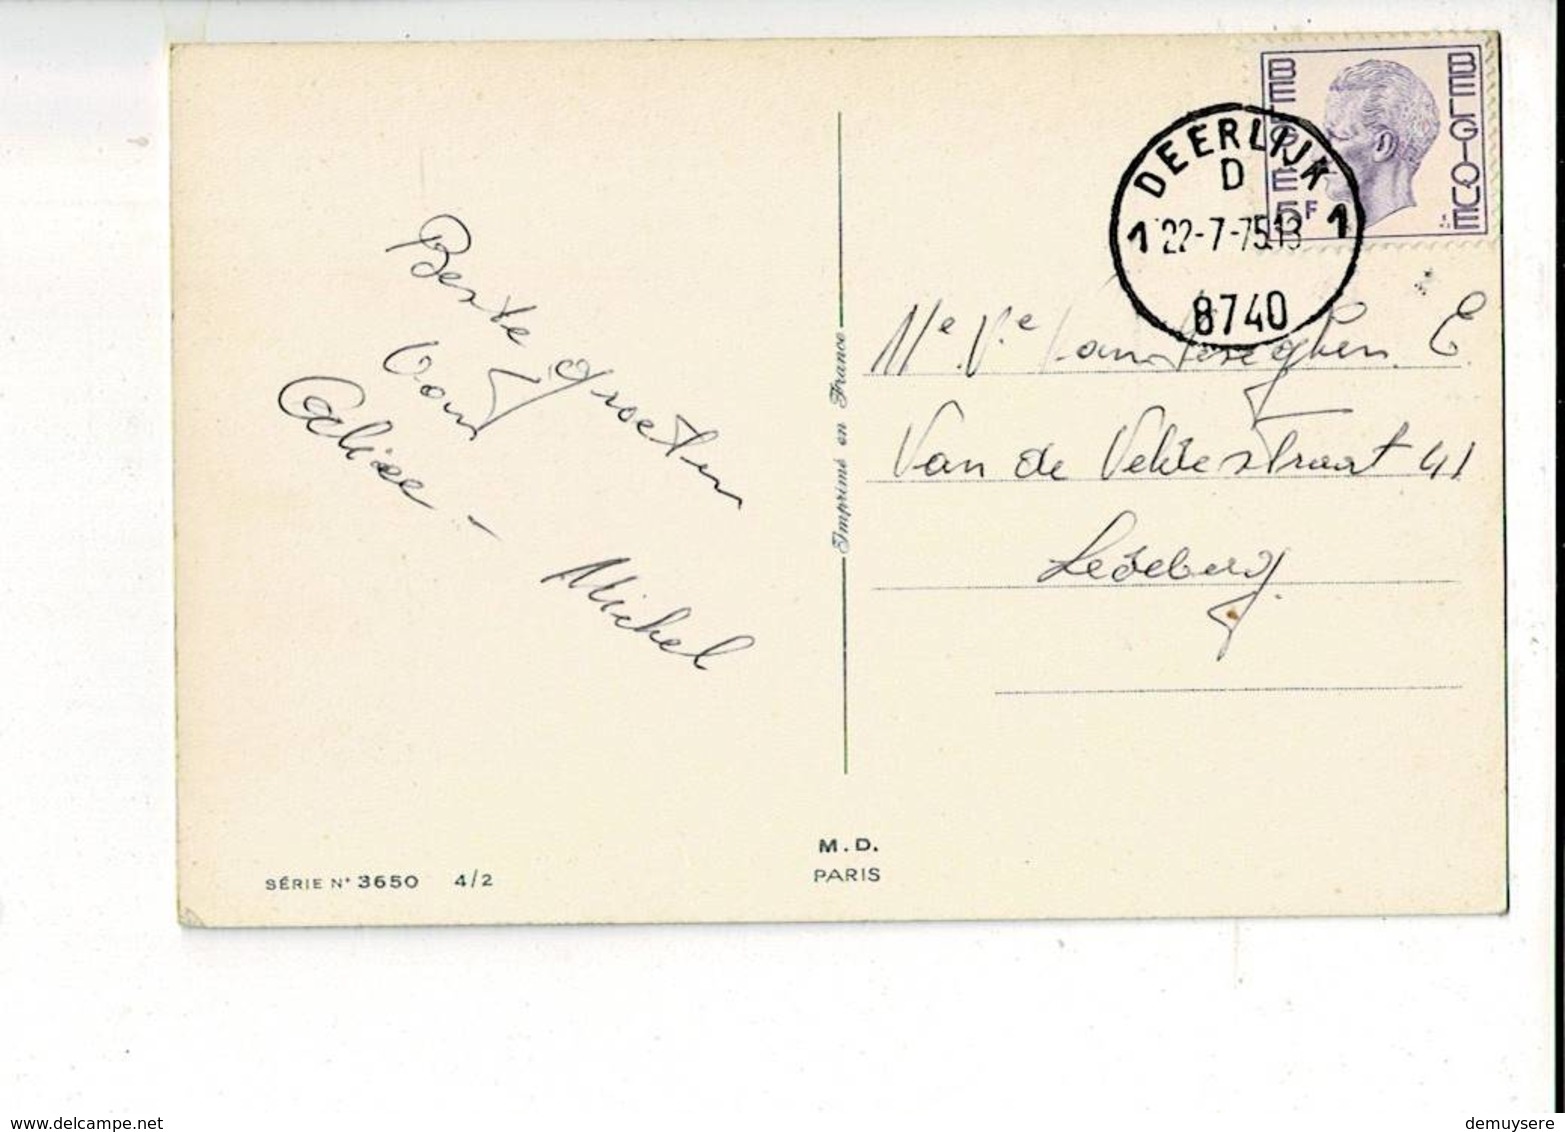 BELGIE
BELGIQUE
5F
DEERLIJK
D
1 22-7-75.13 1
8740
Beste groeten
van
Michel
Me Ve E.
Van de Veldestraat 41
Ledeberg
Imprimé en France
M.D.
PARIS
SÉRIE N° 3650 4/2
www.delcampe.net
demuysere